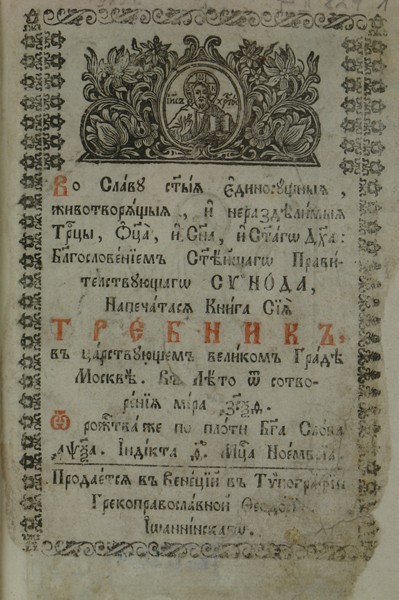 ІИСЪ ХРТО
Во Славу ст҃ыѧ Єдиносꙋщныѧ,
животворѧщыѧ, и нераздѣлимыѧ
Трⷪ҇цы, Ѻ҆ц҃а, и҆ Сн҃а, и҆ Ст҃агѡ Дх҃а:
Благословенїемъ Ст҃ѣйшагѡ Прави-
телствꙋющагѡ СѴНОДА,
Напечатасѧ Книга Сїѧ
ТРЕБНИКЪ,
въ царствꙋющемъ великомъ Градѣ
Москвѣ. Въ Лѣто ѿ сотво-
ренїѧ мїра
Ѿ рождⷭ҇тва же по плоти Бг҃а Слова
Їндїкта Мⷭ҇ца Ноемв
Продаетсѧ въ Венецїй въ Тѵпографїи
Грекоправославной Ѳеодо
Їѡаннїнскагѡ.